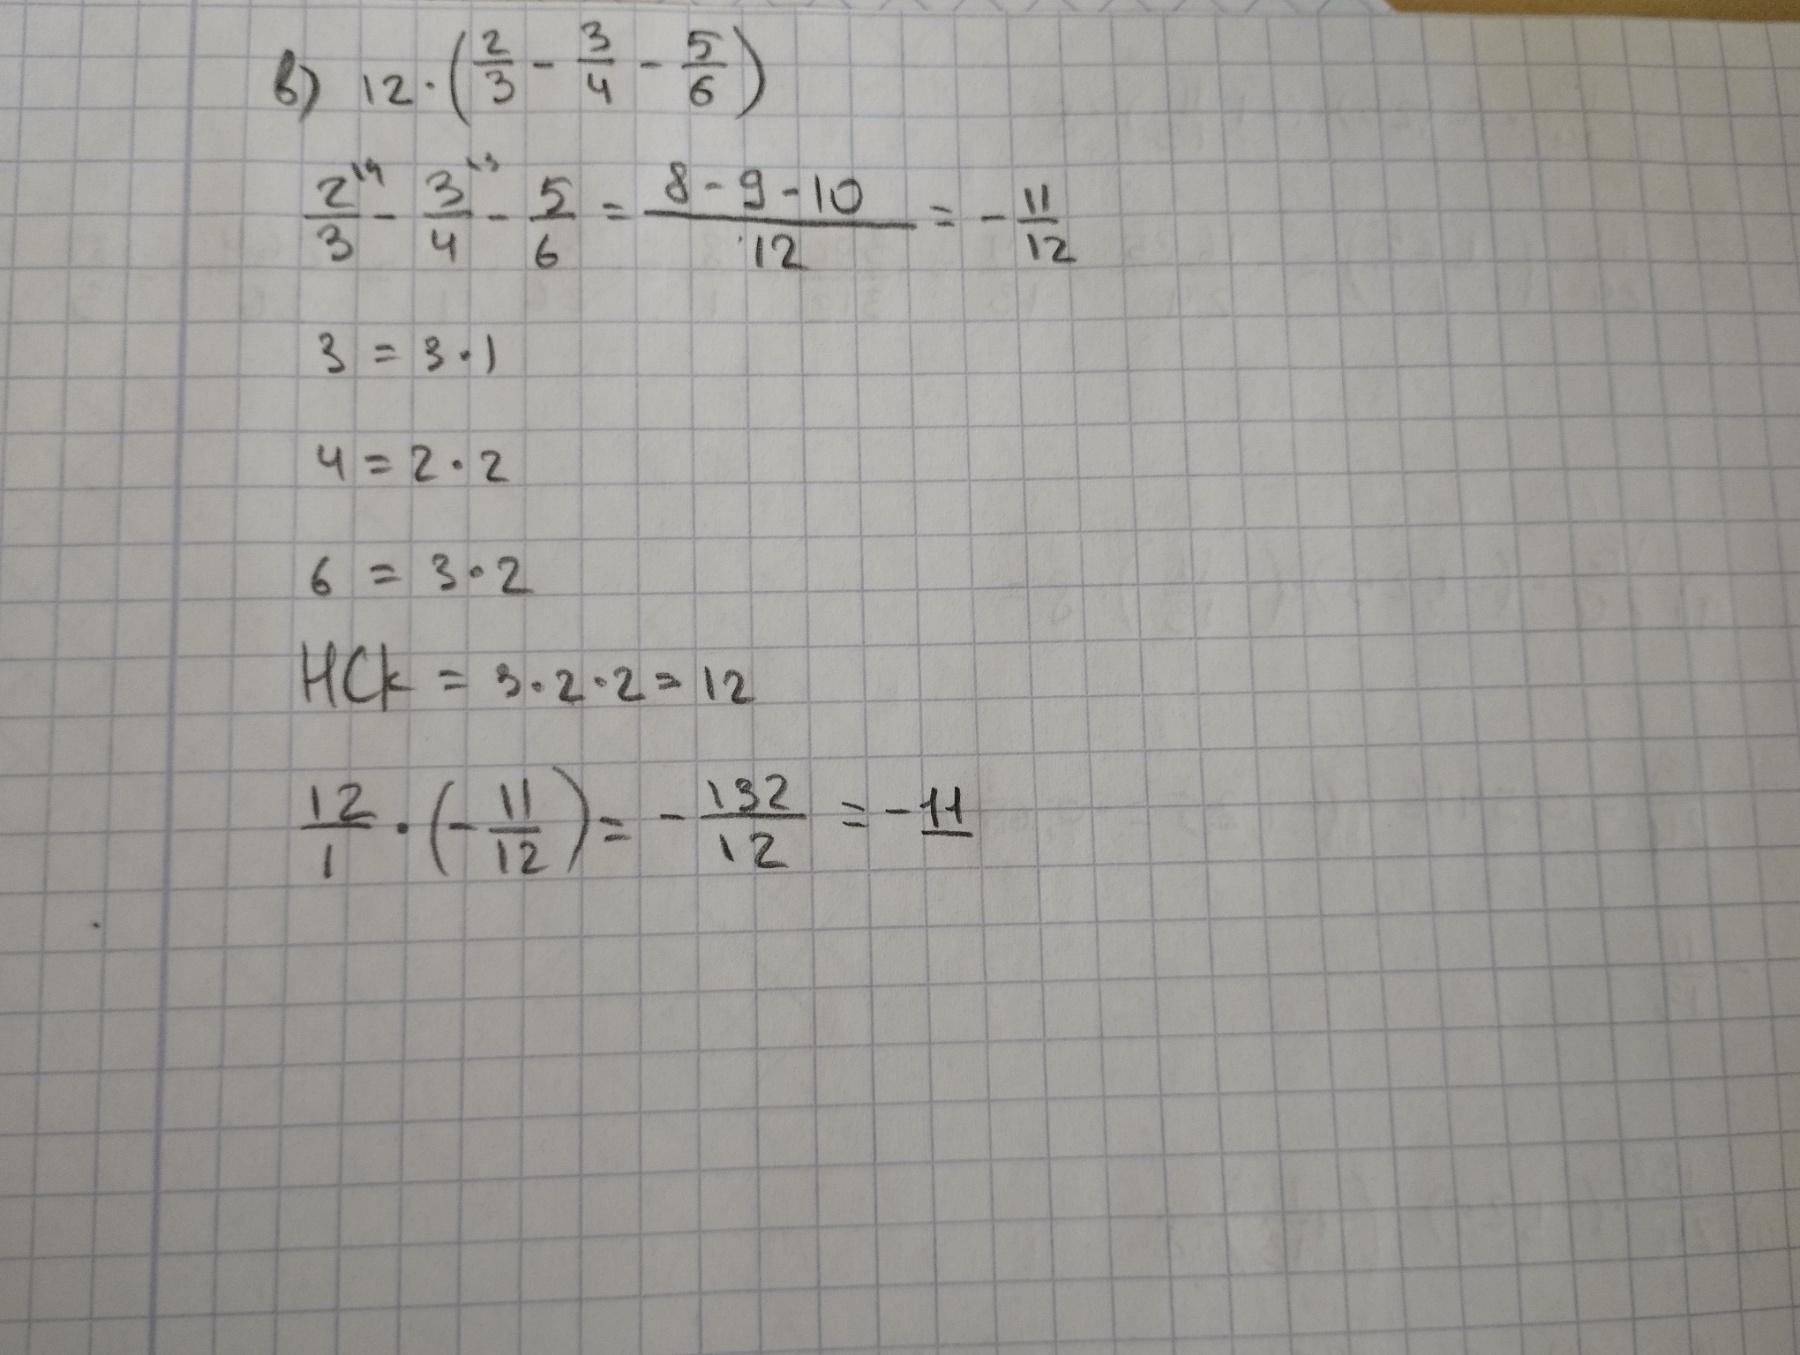 в) 12 · (2/3 - 3/4 - 5/6)
2\4/3 - 3\3/4 - 5/6 = 8 - 9 - 10/12 = - 11/12
3 = 3 · 1
4 = 2 · 2
6 = 3 · 2
НСК = 3 · 2 · 2 = 12
12/1 · (- 11/12) = - 132/12 = - 11